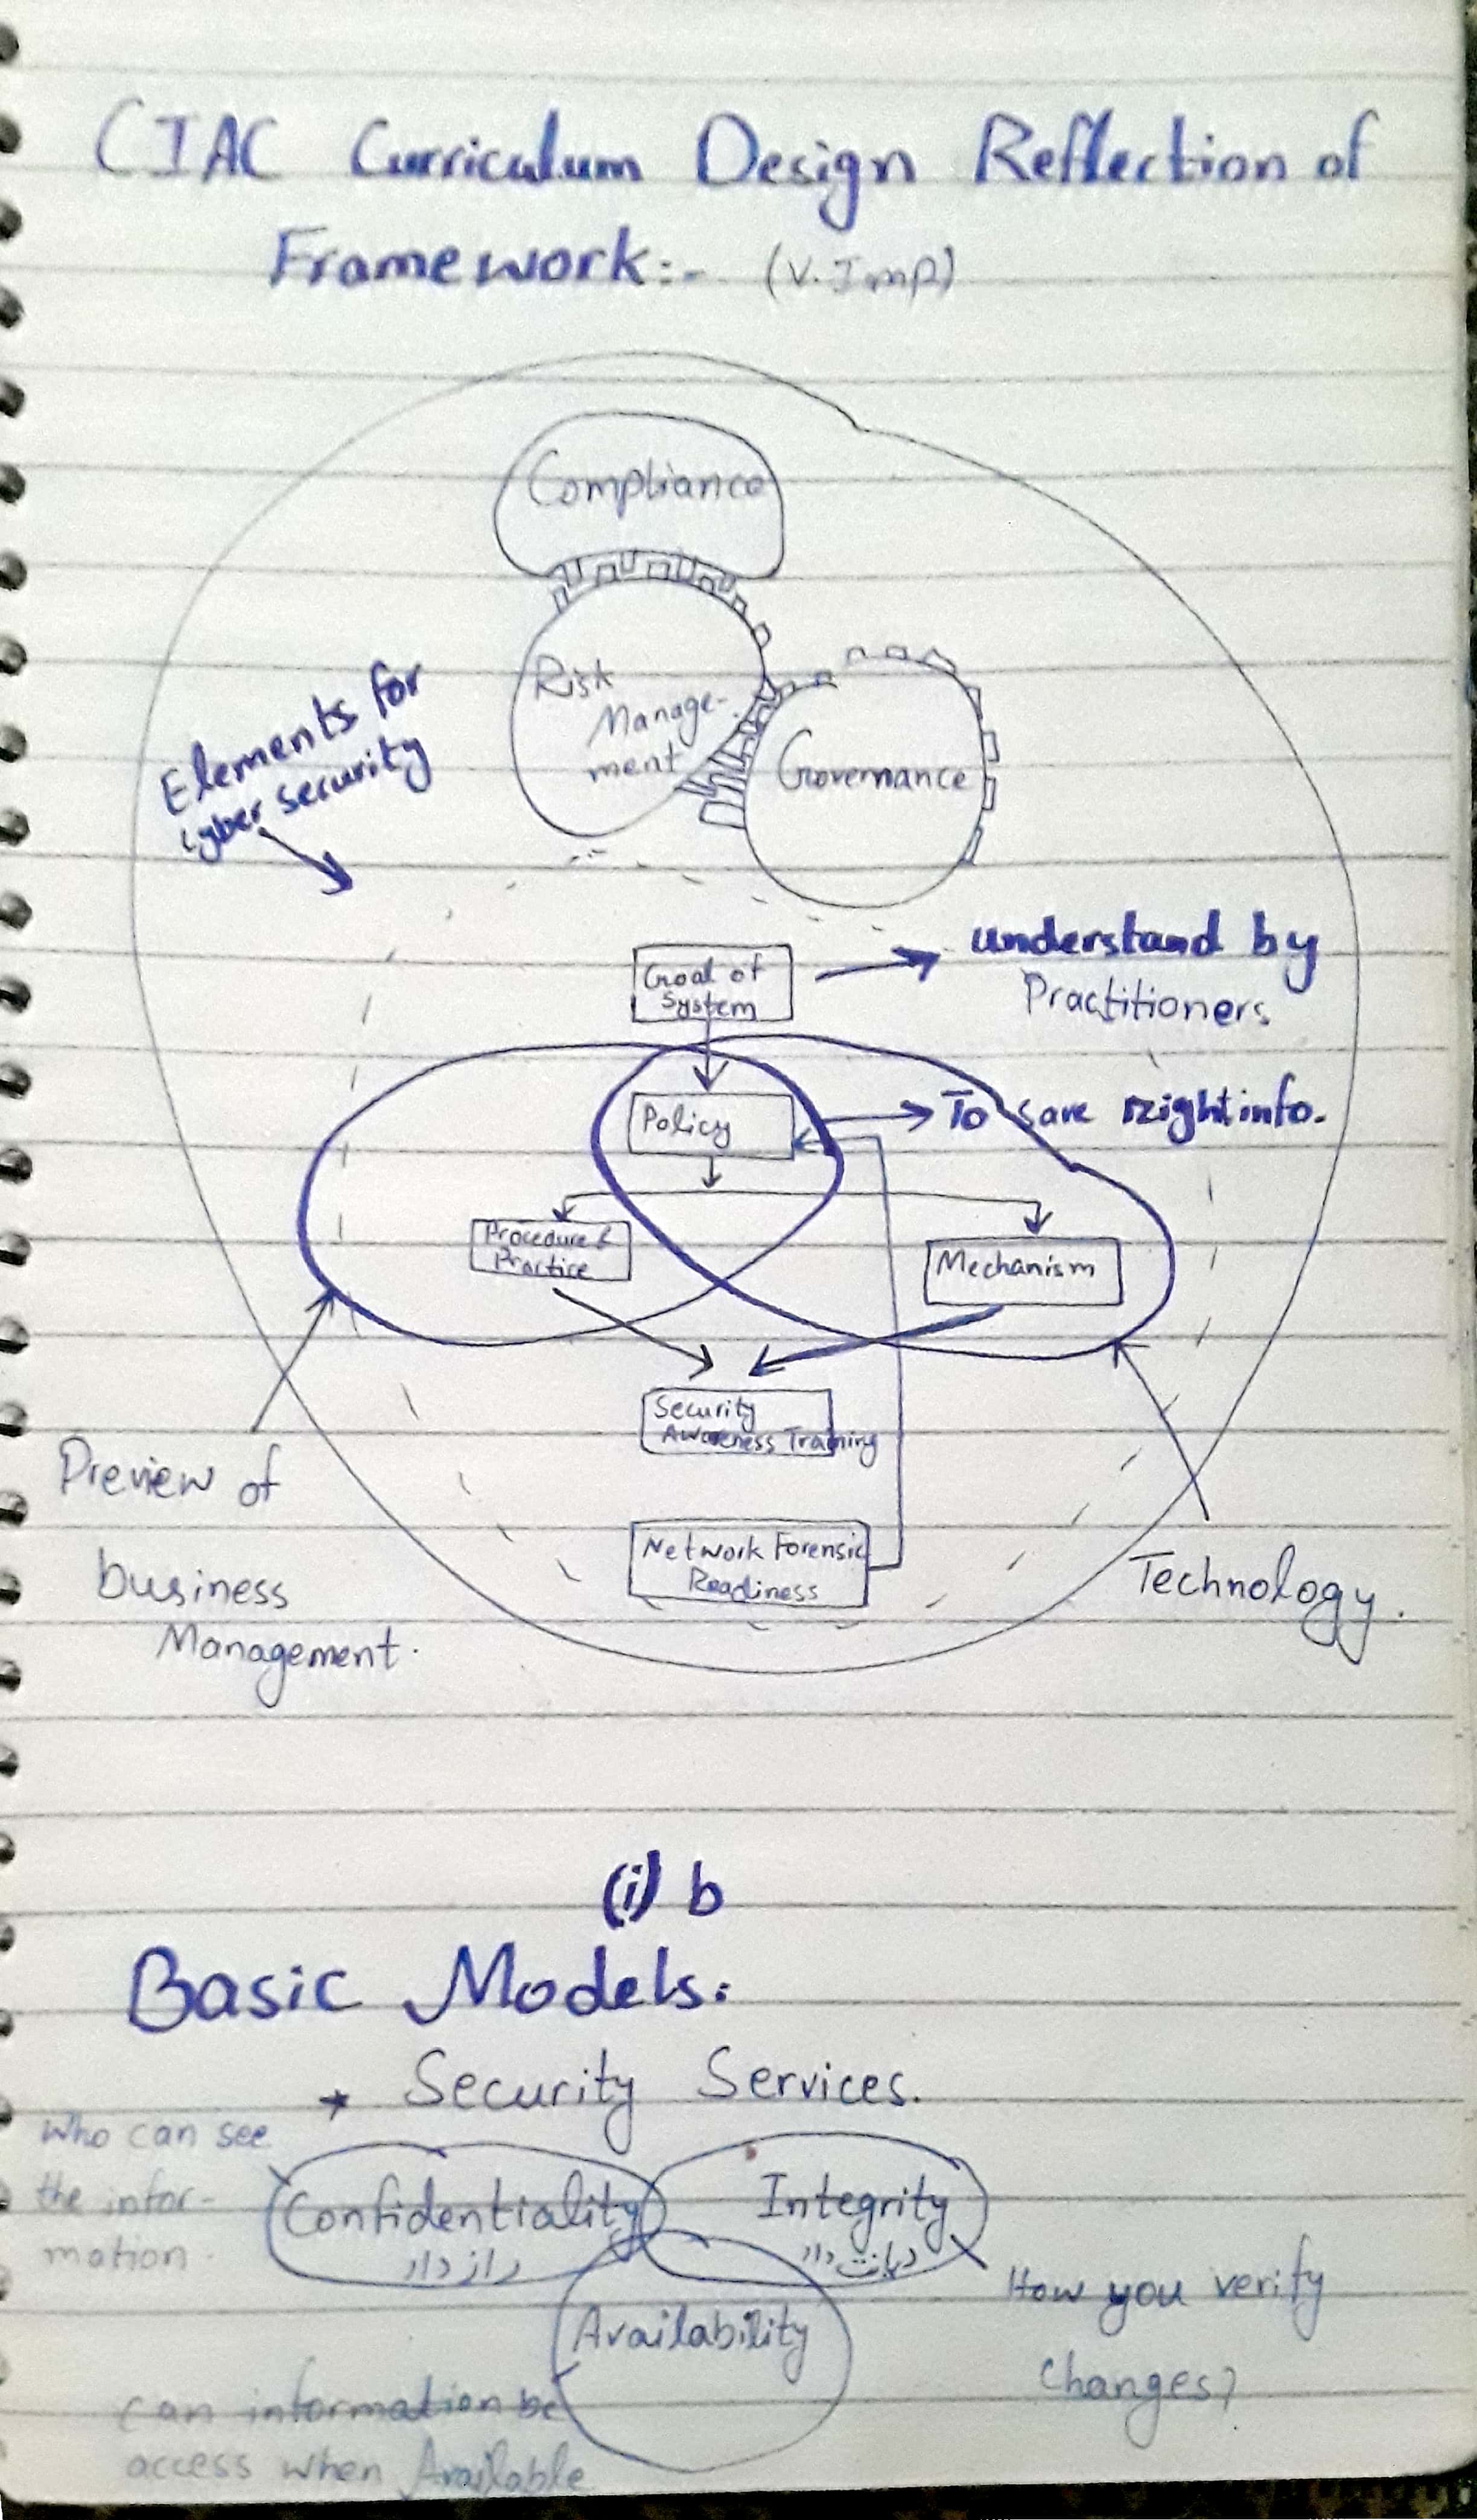 CIAC Curriculum Design Reflection of
Framework:- (V.Imp)
Compliance
Risk
Manage-
ment
Governance
Elements for
cyber security
Goal of
System
understand by
Practitioners
Policy
To save right info.
Procedure &
Practice
Mechanism
Security
Awareness Training
Network Forensic
Readiness
Preview of
business
Management.
Technology.
(i) b
Basic Models:
* Security Services.
Who can see
the infor-
mation.
Confidentiality
راز دار
Integrity
دیانت دار
How you verify
changes?
Availability
can information be
access when Available